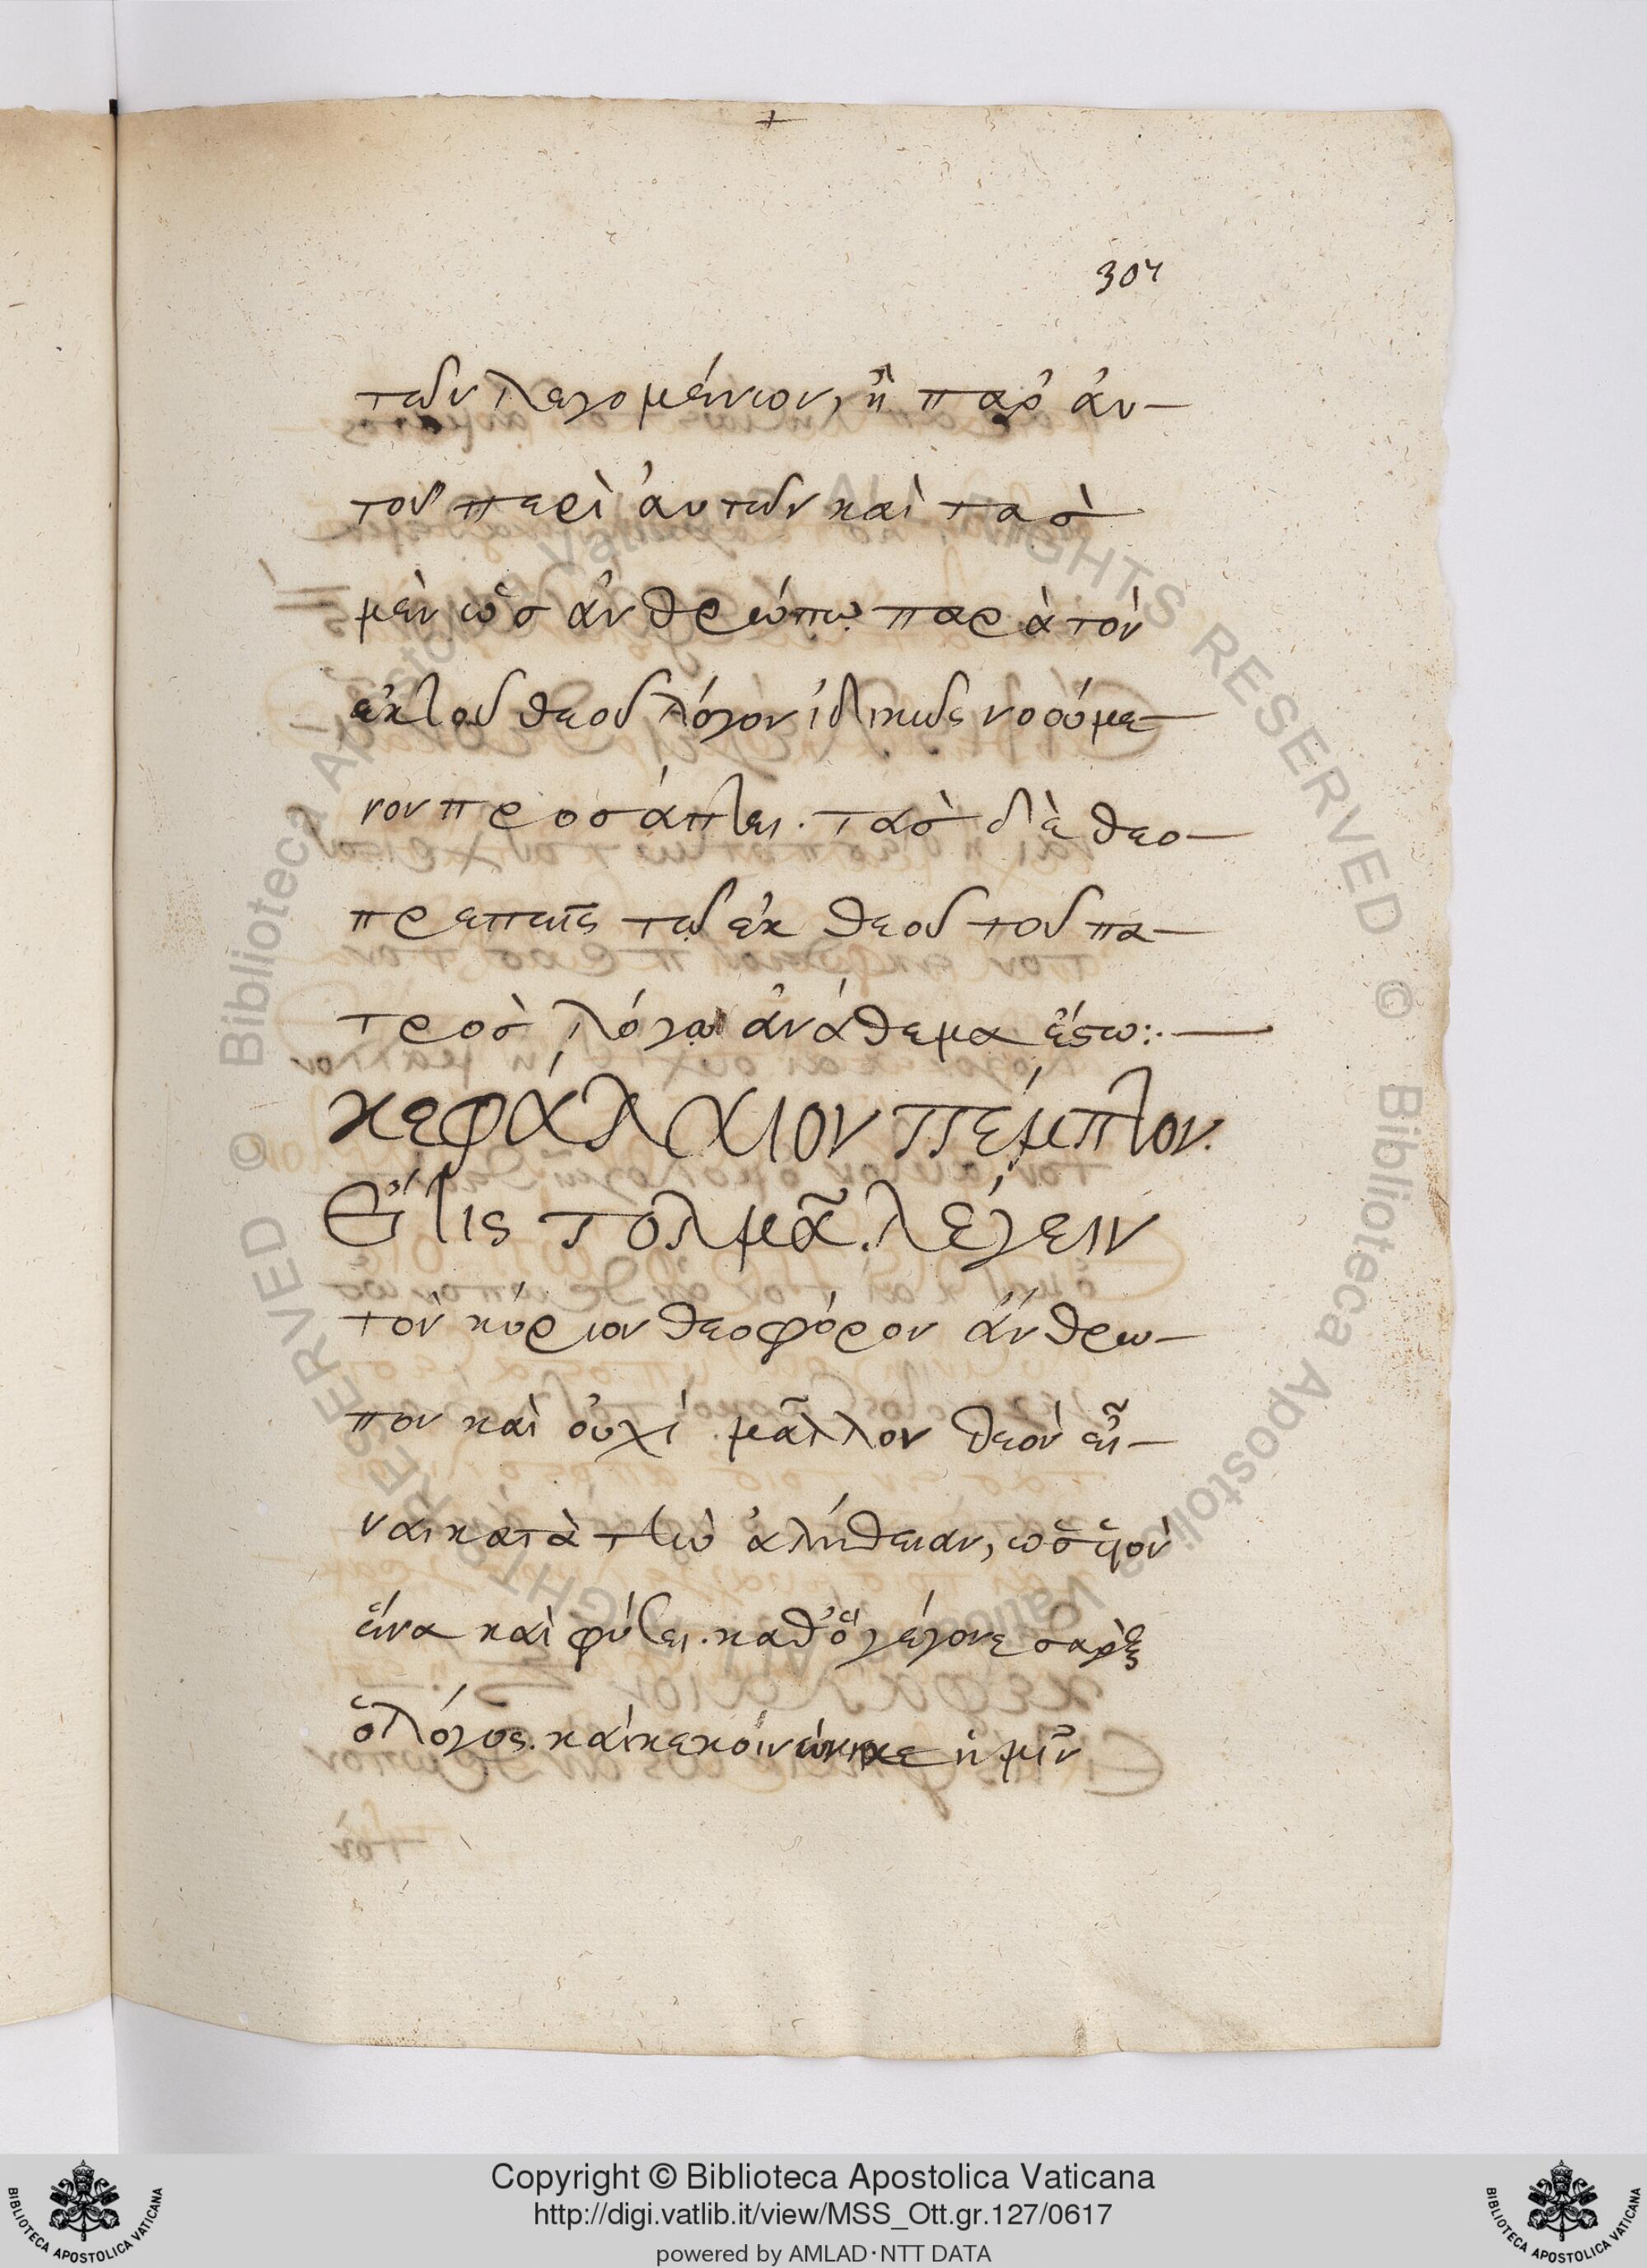 304
τῶν λεγομένων, ἢ παρ' ἀυ-
τοῦ περὶ ἀυτῶν καὶ τασ
μὲν ὡσ ἀνθρώπω παρὰ τὸν
ἐκ τοῦ θεοῦ λόγον ἰδικῶς νοούμε-
νον προσάπτει. τὰσ δὲ θεο-
πρεπεῖς τῶ ἐκ θεοῦ τοῦ πα-
τρὸσ λόγω ἀνάθεμα ἔστω:.
κεφάλαιον πέμπτον.
Εἴ τις τολμᾶ. λέγειν
τὸν κύριον θεοφόρον ἄνθρω-
πον καὶ οὐχί μᾶλλον θεὸν εἶ-
ναι κατὰ τὴν ἀλήθειαν, ὡσ υἱὸν
ἕνα καὶ φύσει. καθ' ὃ γέγονε σαρξ
ὁ λόγος. καὶ κεκοινώνηκε ἡμῖν
Copyright © Biblioteca Apostolica Vaticana
http://digi.vatlib.it/view/MSS_Ott.gr.127/0617
powered by AMLAD·NTT DATA
BIBLIOTECA APOSTOLICA VATICANA
BIBLIOTECA APOSTOLICA VATICANA
© Biblioteca Apostolica Vaticana ALL RIGHTS RESERVED
© Biblioteca Apostolica Vaticana ALL RIGHTS RESERVED